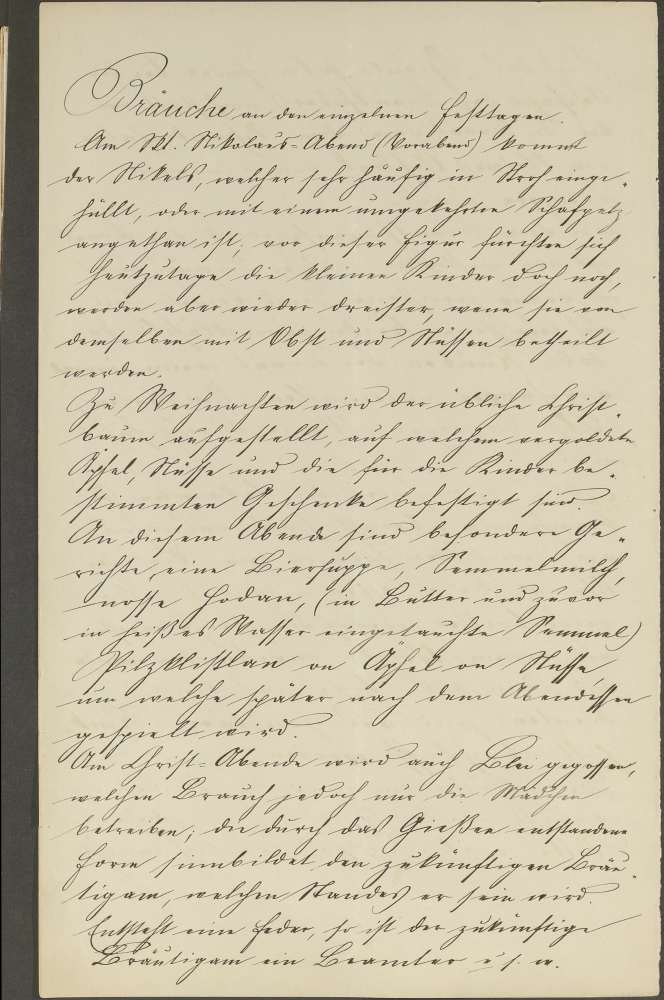 Bräuche an den einzelnen Festtagen.
Am Skt. Nikolaus-Abend (Vorabend) kommt
der Nikels, welcher sehr häufig in Stroh einge-
hüllt, oder mit einem umgekehrten Schafpelz
angethan ist; vor dieser Figur fürchten sich
heutzutage die kleinen Kinder doch noch,
werden aber wieder dreister, wenn sie von
demselben mit Obst und Nüssen betheilt
werden.
Zu Weihnachten wird der übliche Christ-
baum aufgestellt, auf welchem vergoldete
Äpfel, Nüsse und die für die Kinder be-
stimmten Geschenke befestigt sind.
An diesem Abende sind besondere Ge-
richte, eine Biersuppe, Semmelmilch,
nosse Hodan, (in Butter und zuvor
in heißes Wasser eingetauchte Semmel)
Pilzklistlan on Äpfel on Nüsse,
um welche später nach dem Abendessen
gespielt wird.
Am Christ-Abende wird auch Blei gegossen,
welchen Brauch jedoch nur die Mädchen
betreiben; die durch das Gießen entstandene
Form sinnbildet den zukünftigen Bräu-
tigam, welchen Standes er sein wird.
Entsteht eine Feder, so ist der zukünftige
Bräutigam ein Beamter u. s. w.